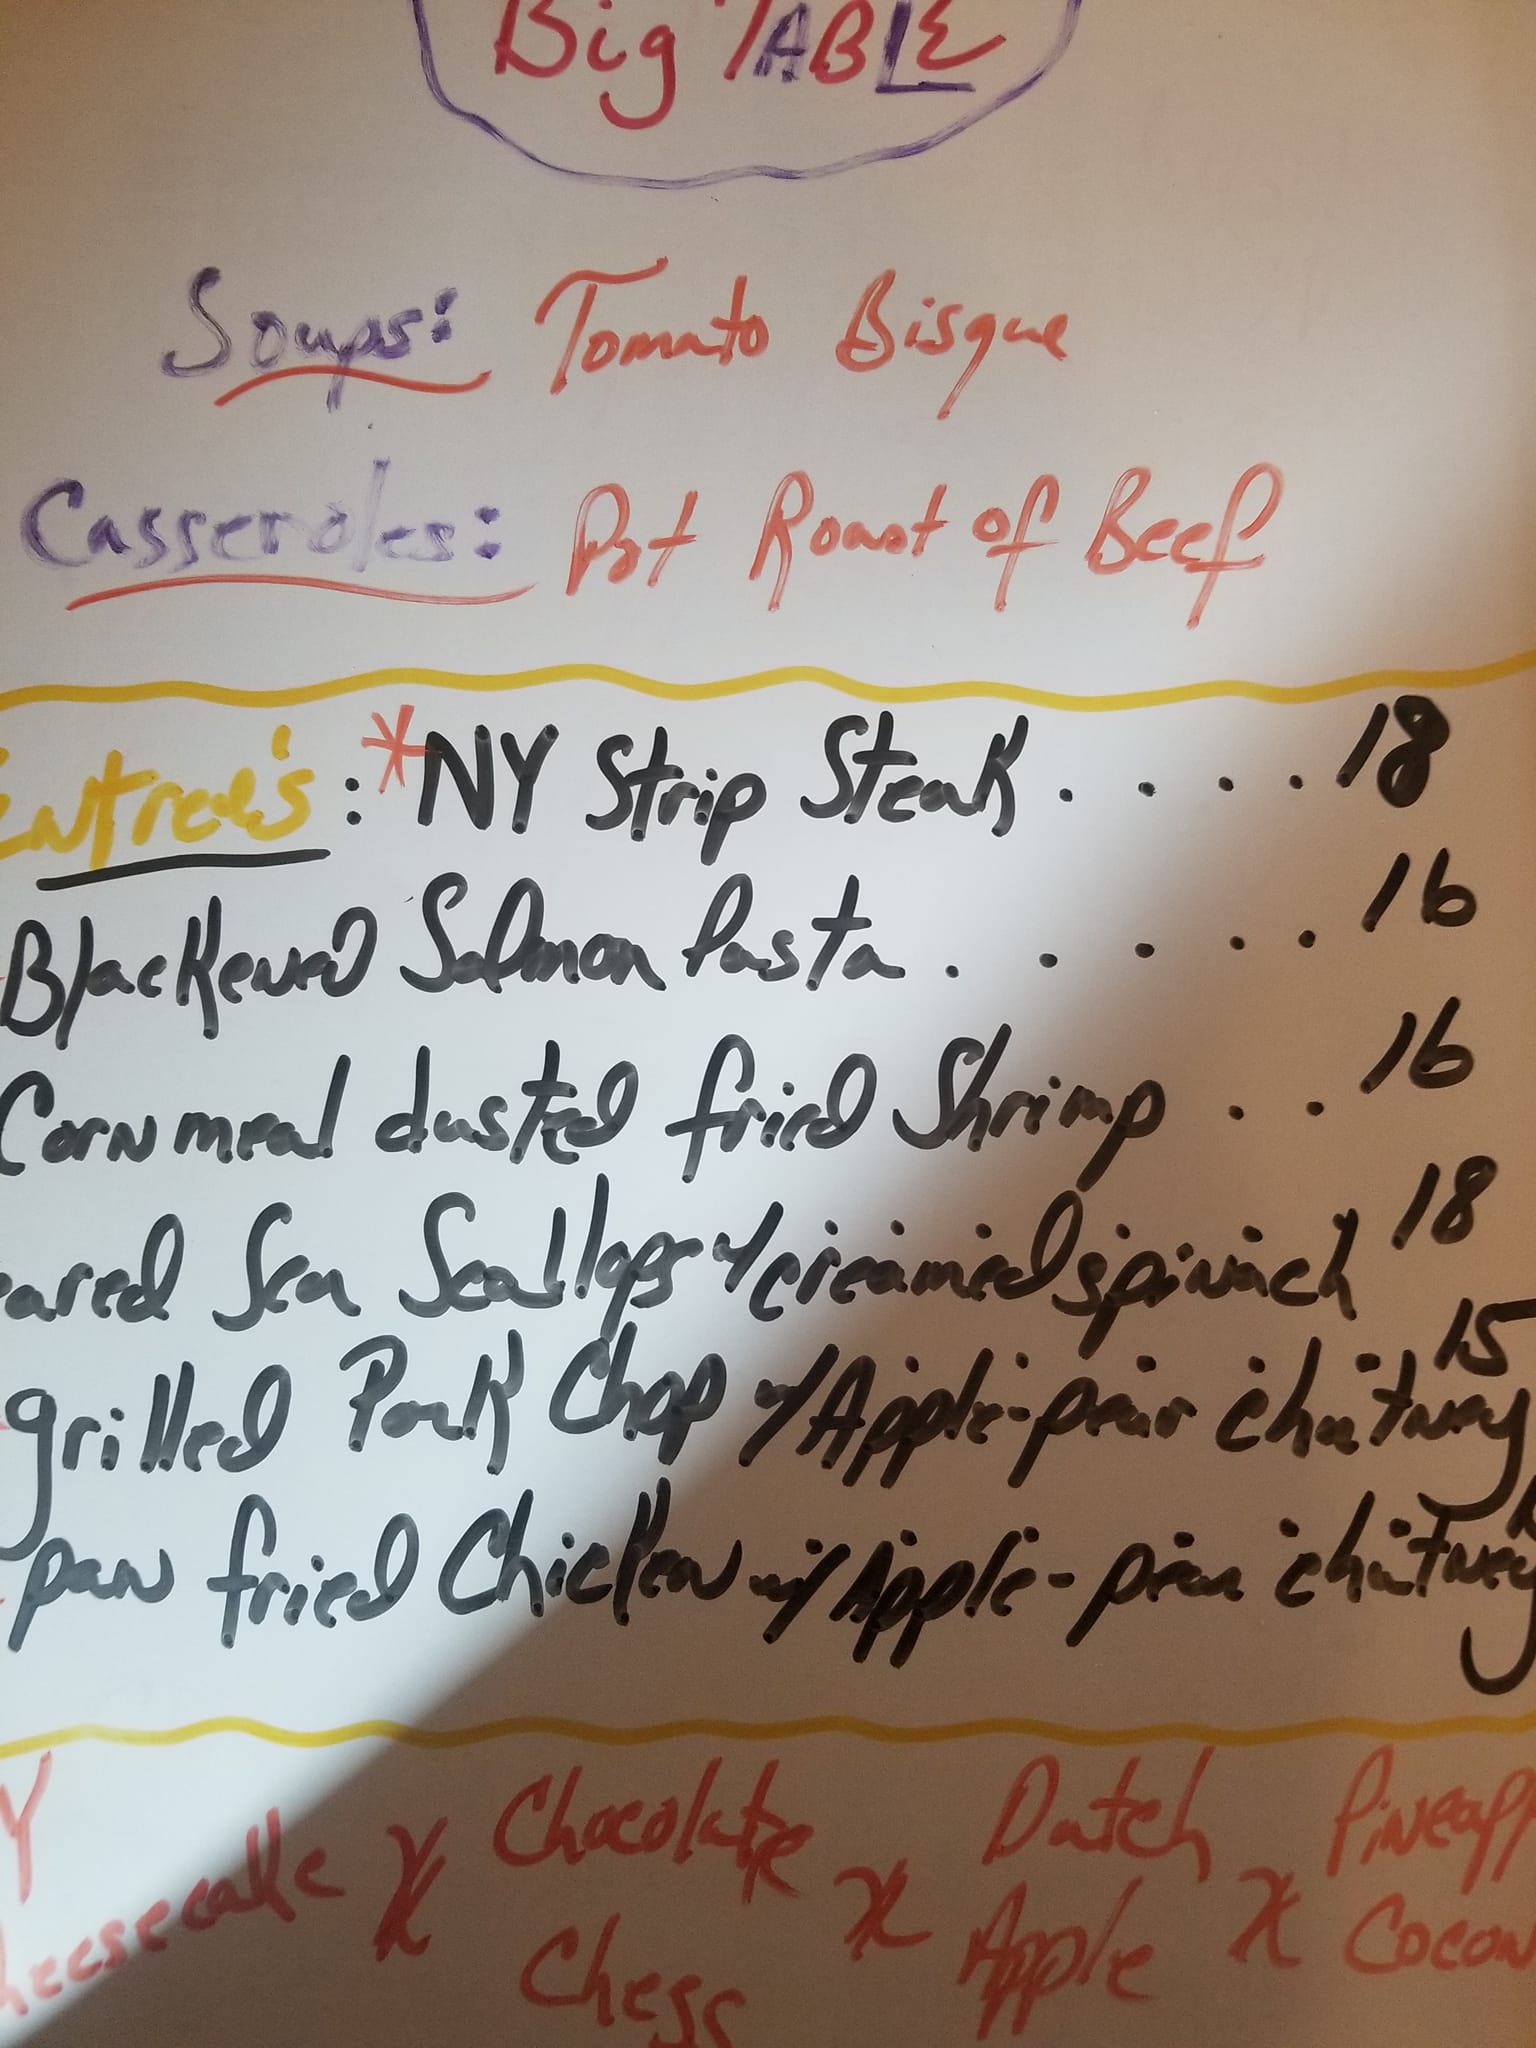 Big TABLE
Soups: Tomato Bisque
Casseroles: Pot Roast of Beef
Entree's: *NY Strip Steak . . . . 18
Blackened Salmon Pasta . . . . . 16
Cornmeal dusted fried Shrimp . . 16
eared Sea Scallops w/ creamed spinach 18
grilled Pork Chop w/ Apple-pear chutney 15
pan fried Chicken w/ Apple-pear chutney
Y Chocolate Dutch Pineapp
heesecake X Chess X Apple X Cocon